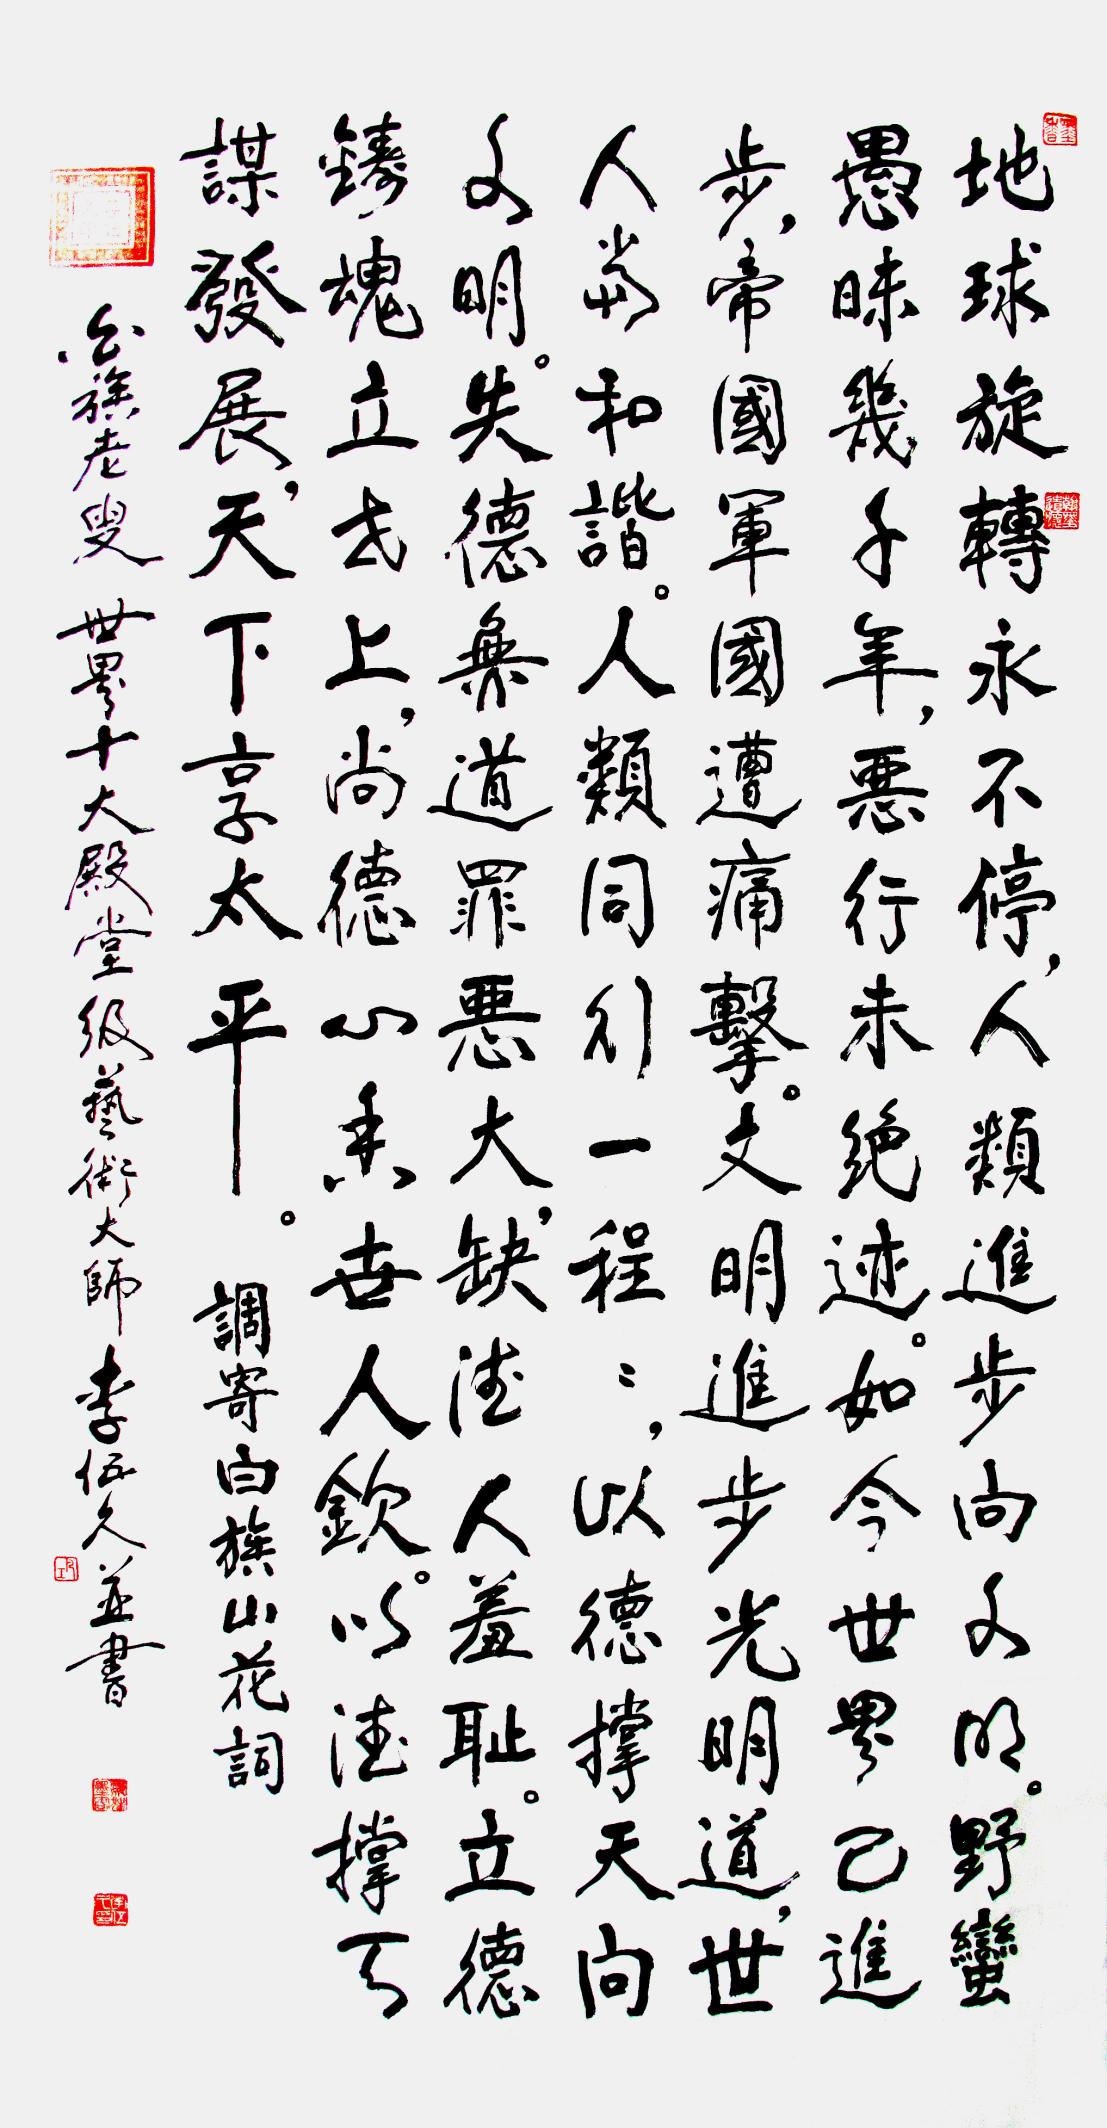 地球旋轉永不停，人類進步向文明。野蠻
愚昧幾千年，悪行未绝迹。如今世界已進
步，帝國軍國遭痛擊。文明進步光明道，世
人和諧。人類同行一程〻，以德撑天向
文明。失德無道罪悪大，缺德人羞耻。立德
鑄魂立上，尚德心香世人欽。以德撑天
謀發展，天下享太平。調寄白族山花詞
白族老叟 世界十大殿堂级藝術大師 李伍久並書